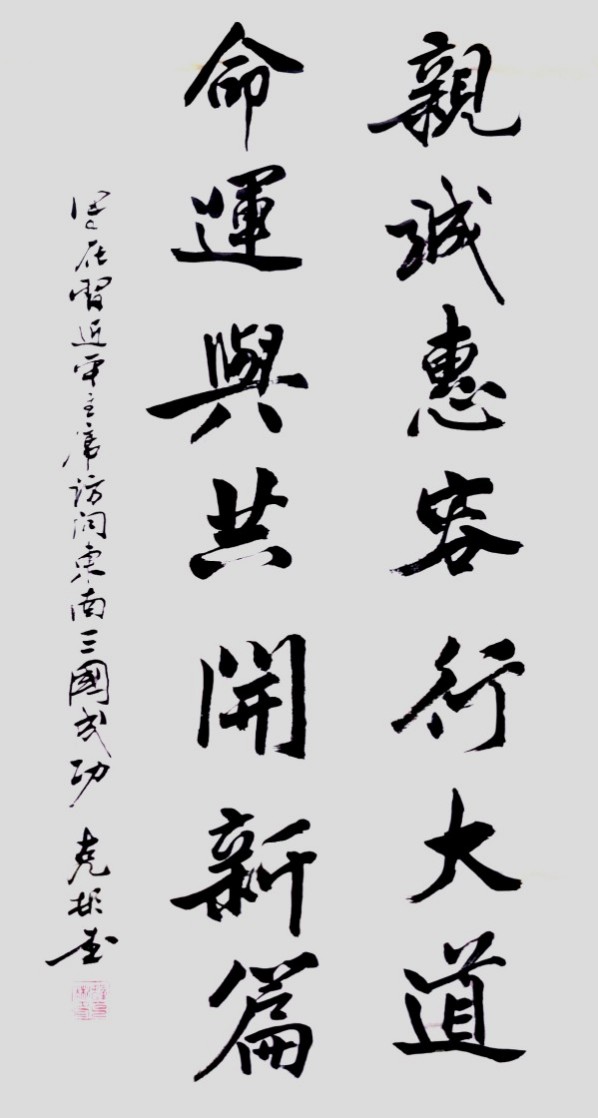 親誠惠容行大道
命運與共開新篇
習近平主席訪问東南三國成功 克彬書